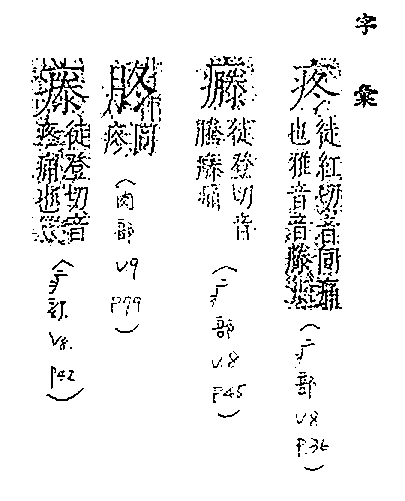 字彙
疼
徒紅切音同痛
也雅音音滕
(疒部 V8 P.36)
徒登切音
騰痛
(疒部 V.8 P.45)
同
疼
(肉部 V9 P.99)
徒登切音
疼痛也
(疒部 V8. P.42)